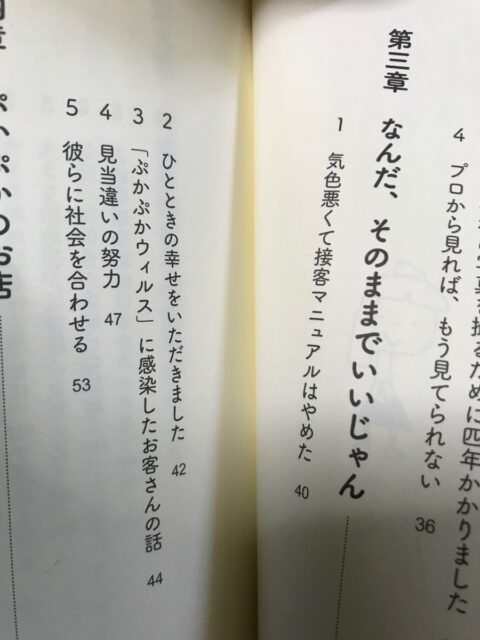 写真を撮るために四年かかりました
4 プロから見れば、もう見てられない 36
第三章 なんだ、そのままでいいじゃん
1 気色悪くて接客マニュアルはやめた 40
2 ひとときの幸せをいただきました 42
3 「ぷかぷかウィルス」に感染したお客さんの話 44
4 見当違いの努力 47
5 彼らに社会を合わせる 53
章 ぷかぷかのお店